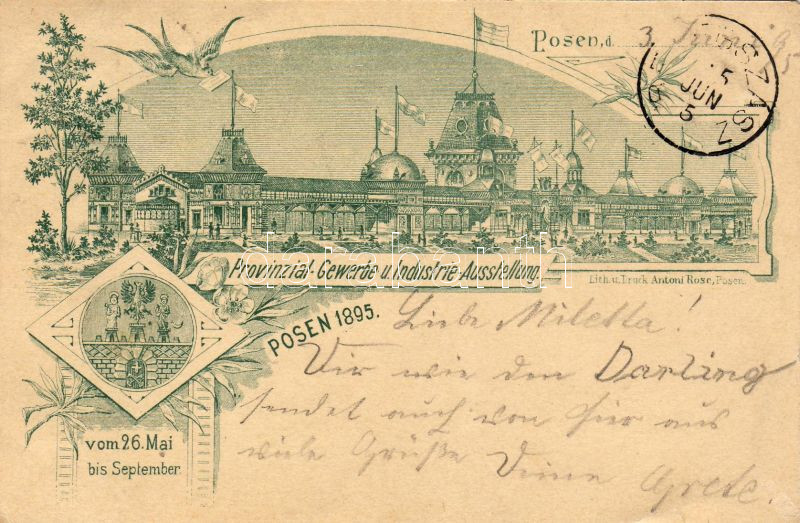 Posen, d. 3 Juni 95
JUN
5
Provinzial-Gewerbe u. Industrie-Ausstellung
Lith. u. Druck Antoni Rose, Posen.
POSEN 1895.
vom 26. Mai
bis September
Liebe Miletta!
Wir wie den Darling
sendet auch von hier aus
viele Grüße Deine Grete.
darabanth